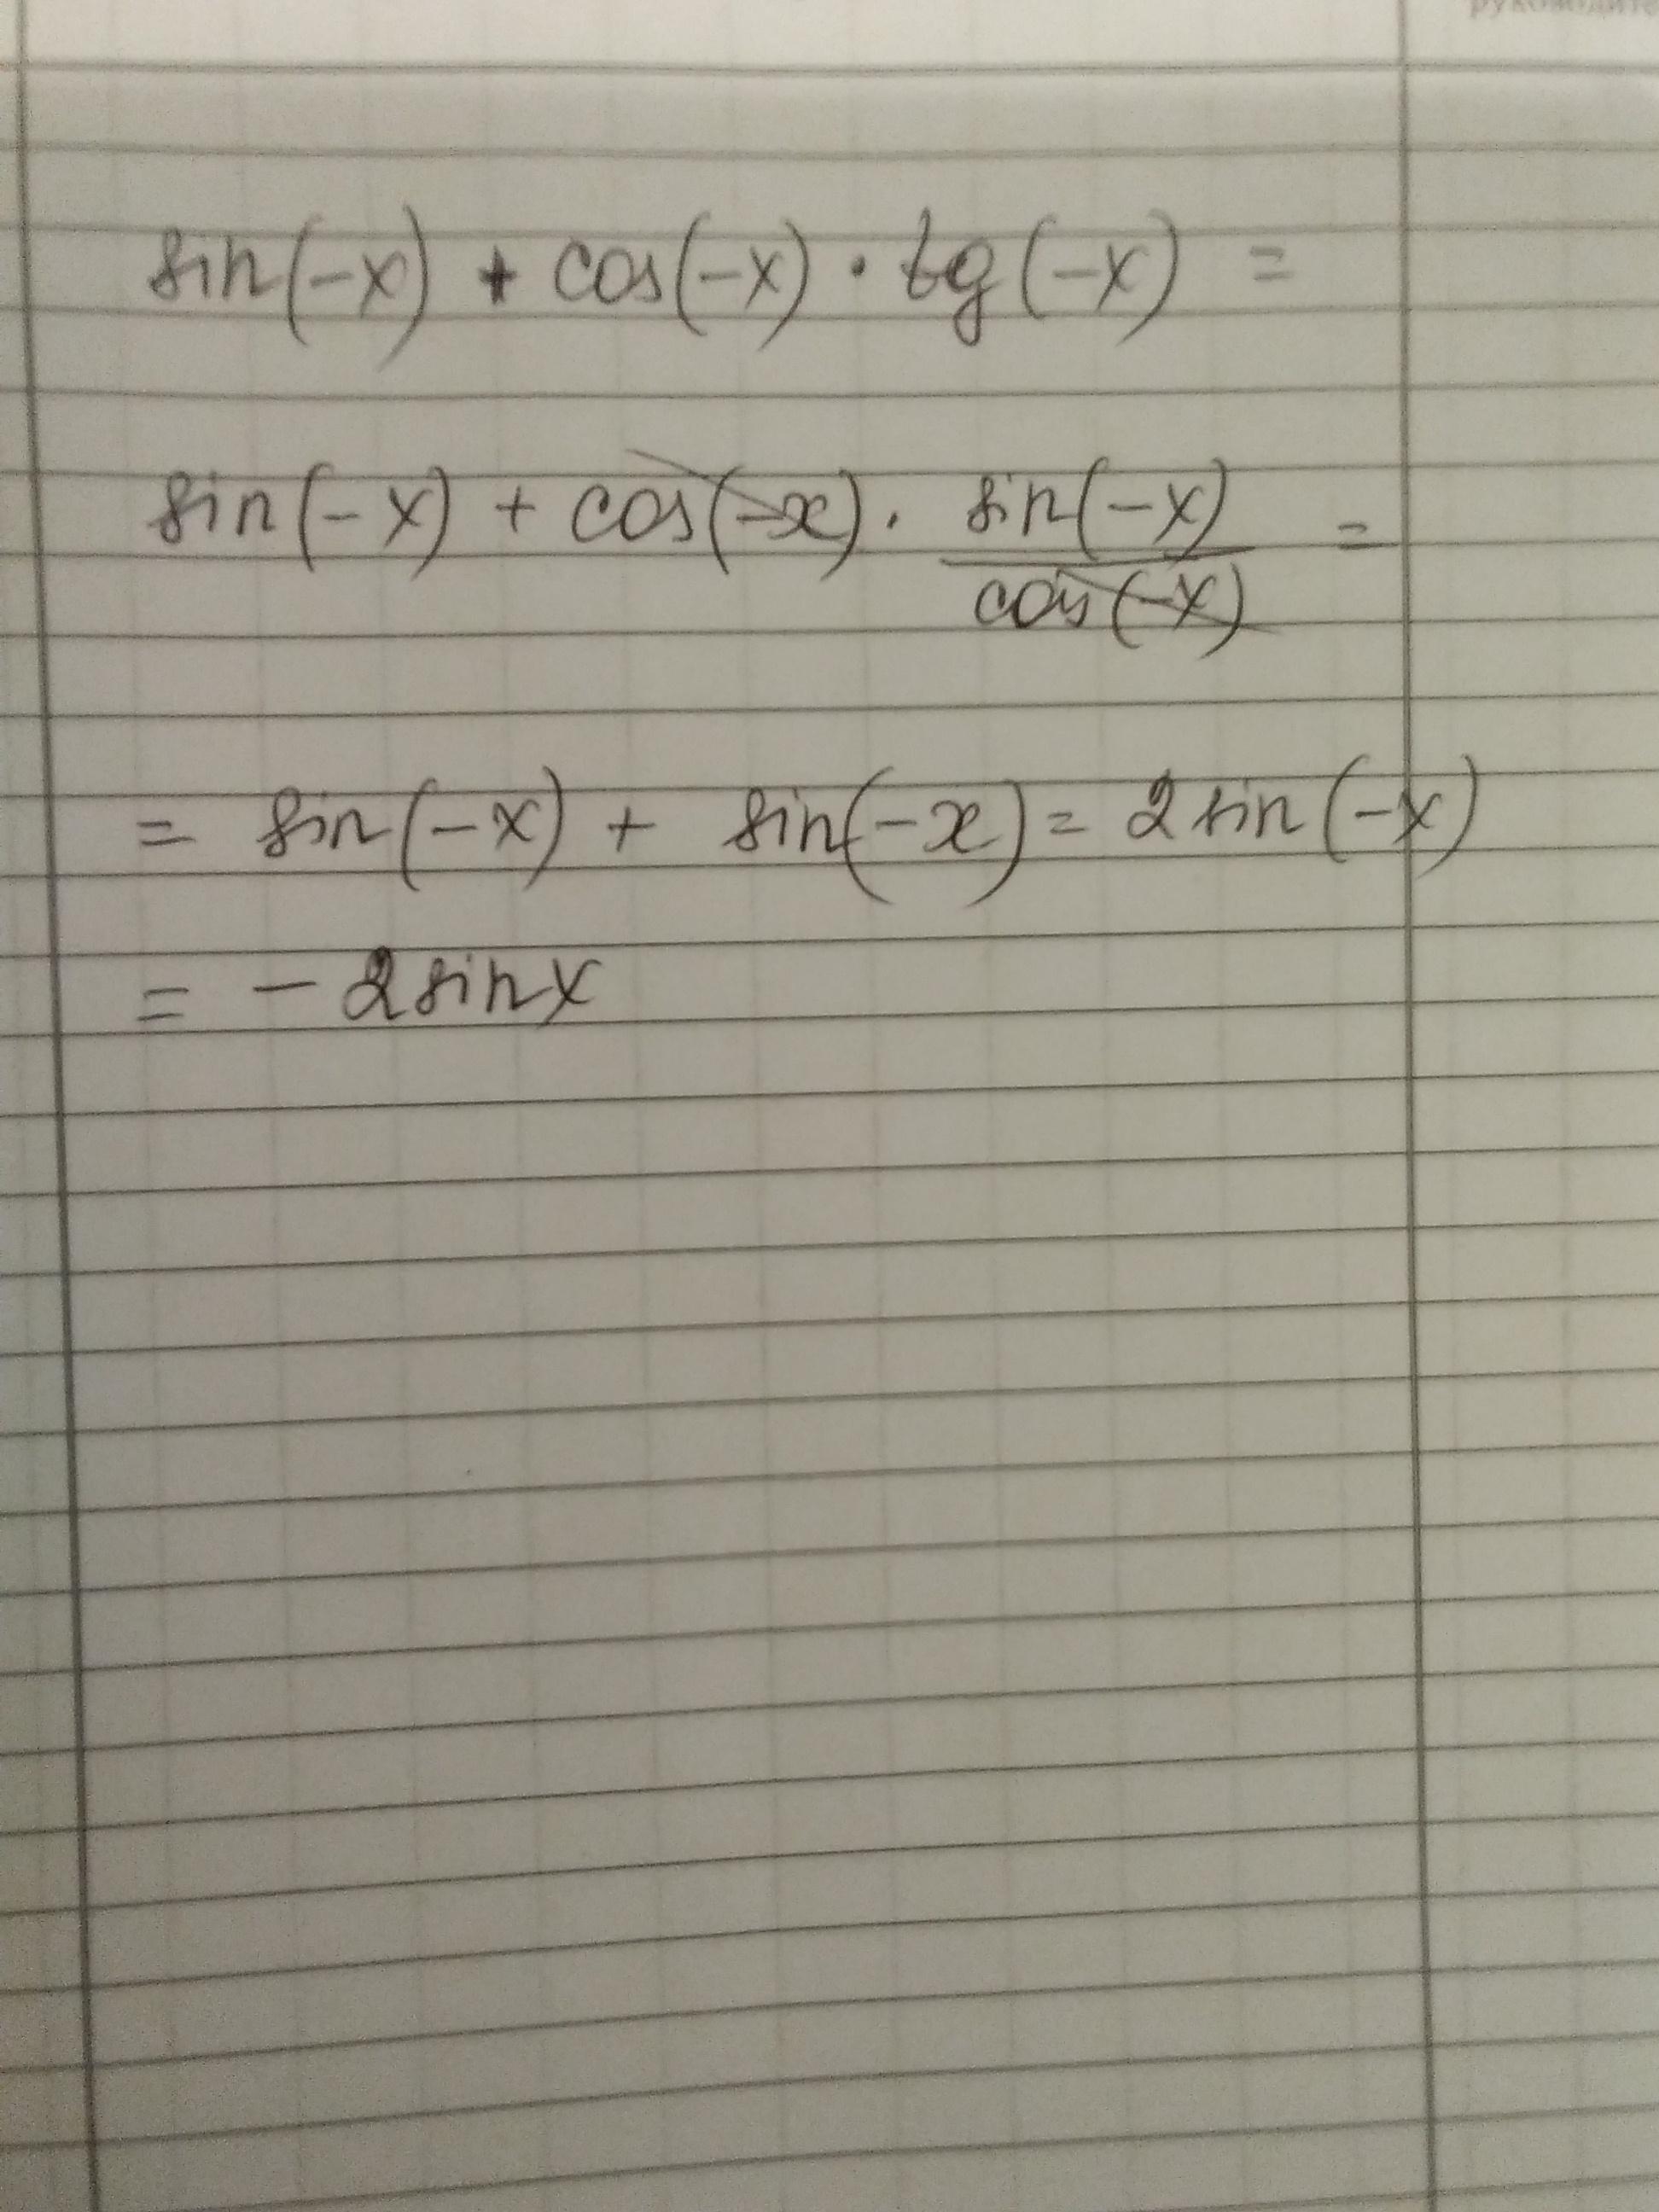 руководите
sin(-x) + cos(-x) · tg(-x) =
sin(-x) + cos(-x) · sin(-x)/cos(-x) =
= sin(-x) + sin(-x) = 2 sin(-x)
= - 2 sin x